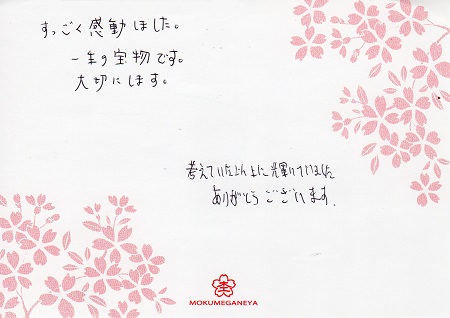 すっごく感動しました。
一生の宝物です。
大切にします。
考えていたより上に輝いていました
ありがとうございます.
MOKUMEGANEYA